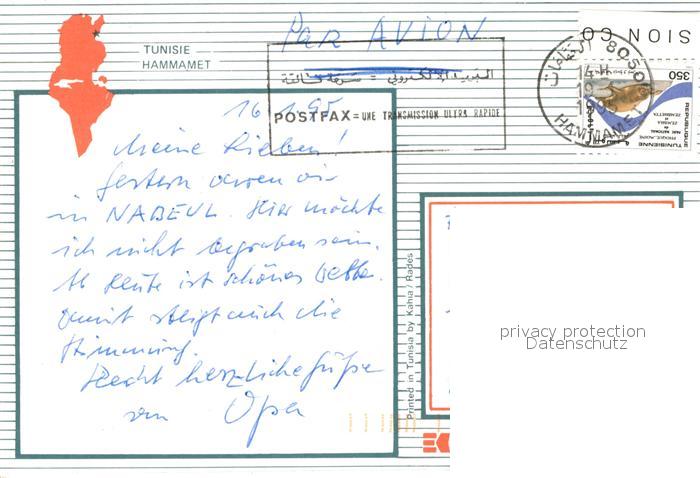 Par AVION
SION CO
TUNISIE
HAMMAMET
8050
14H
HAMMAMET
350
REPUBLIQUE
TUNISIENNE
البريد الإلكتروني = سرعة فائقة
POSTFAX = UNE TRANSMISSION ULTRA RAPIDE
16.1.95
Meine Lieben!
Gestern waren wir
in NABEUL. Hier möchte
ich nicht begraben sein.
Heute ist schönes Wetter.
Damit steigt auch die
Stimmung.
Recht herzliche Grüße
von Opa
Printed in Tunisia by Kahia / Rades
privacy protection
Datenschutz